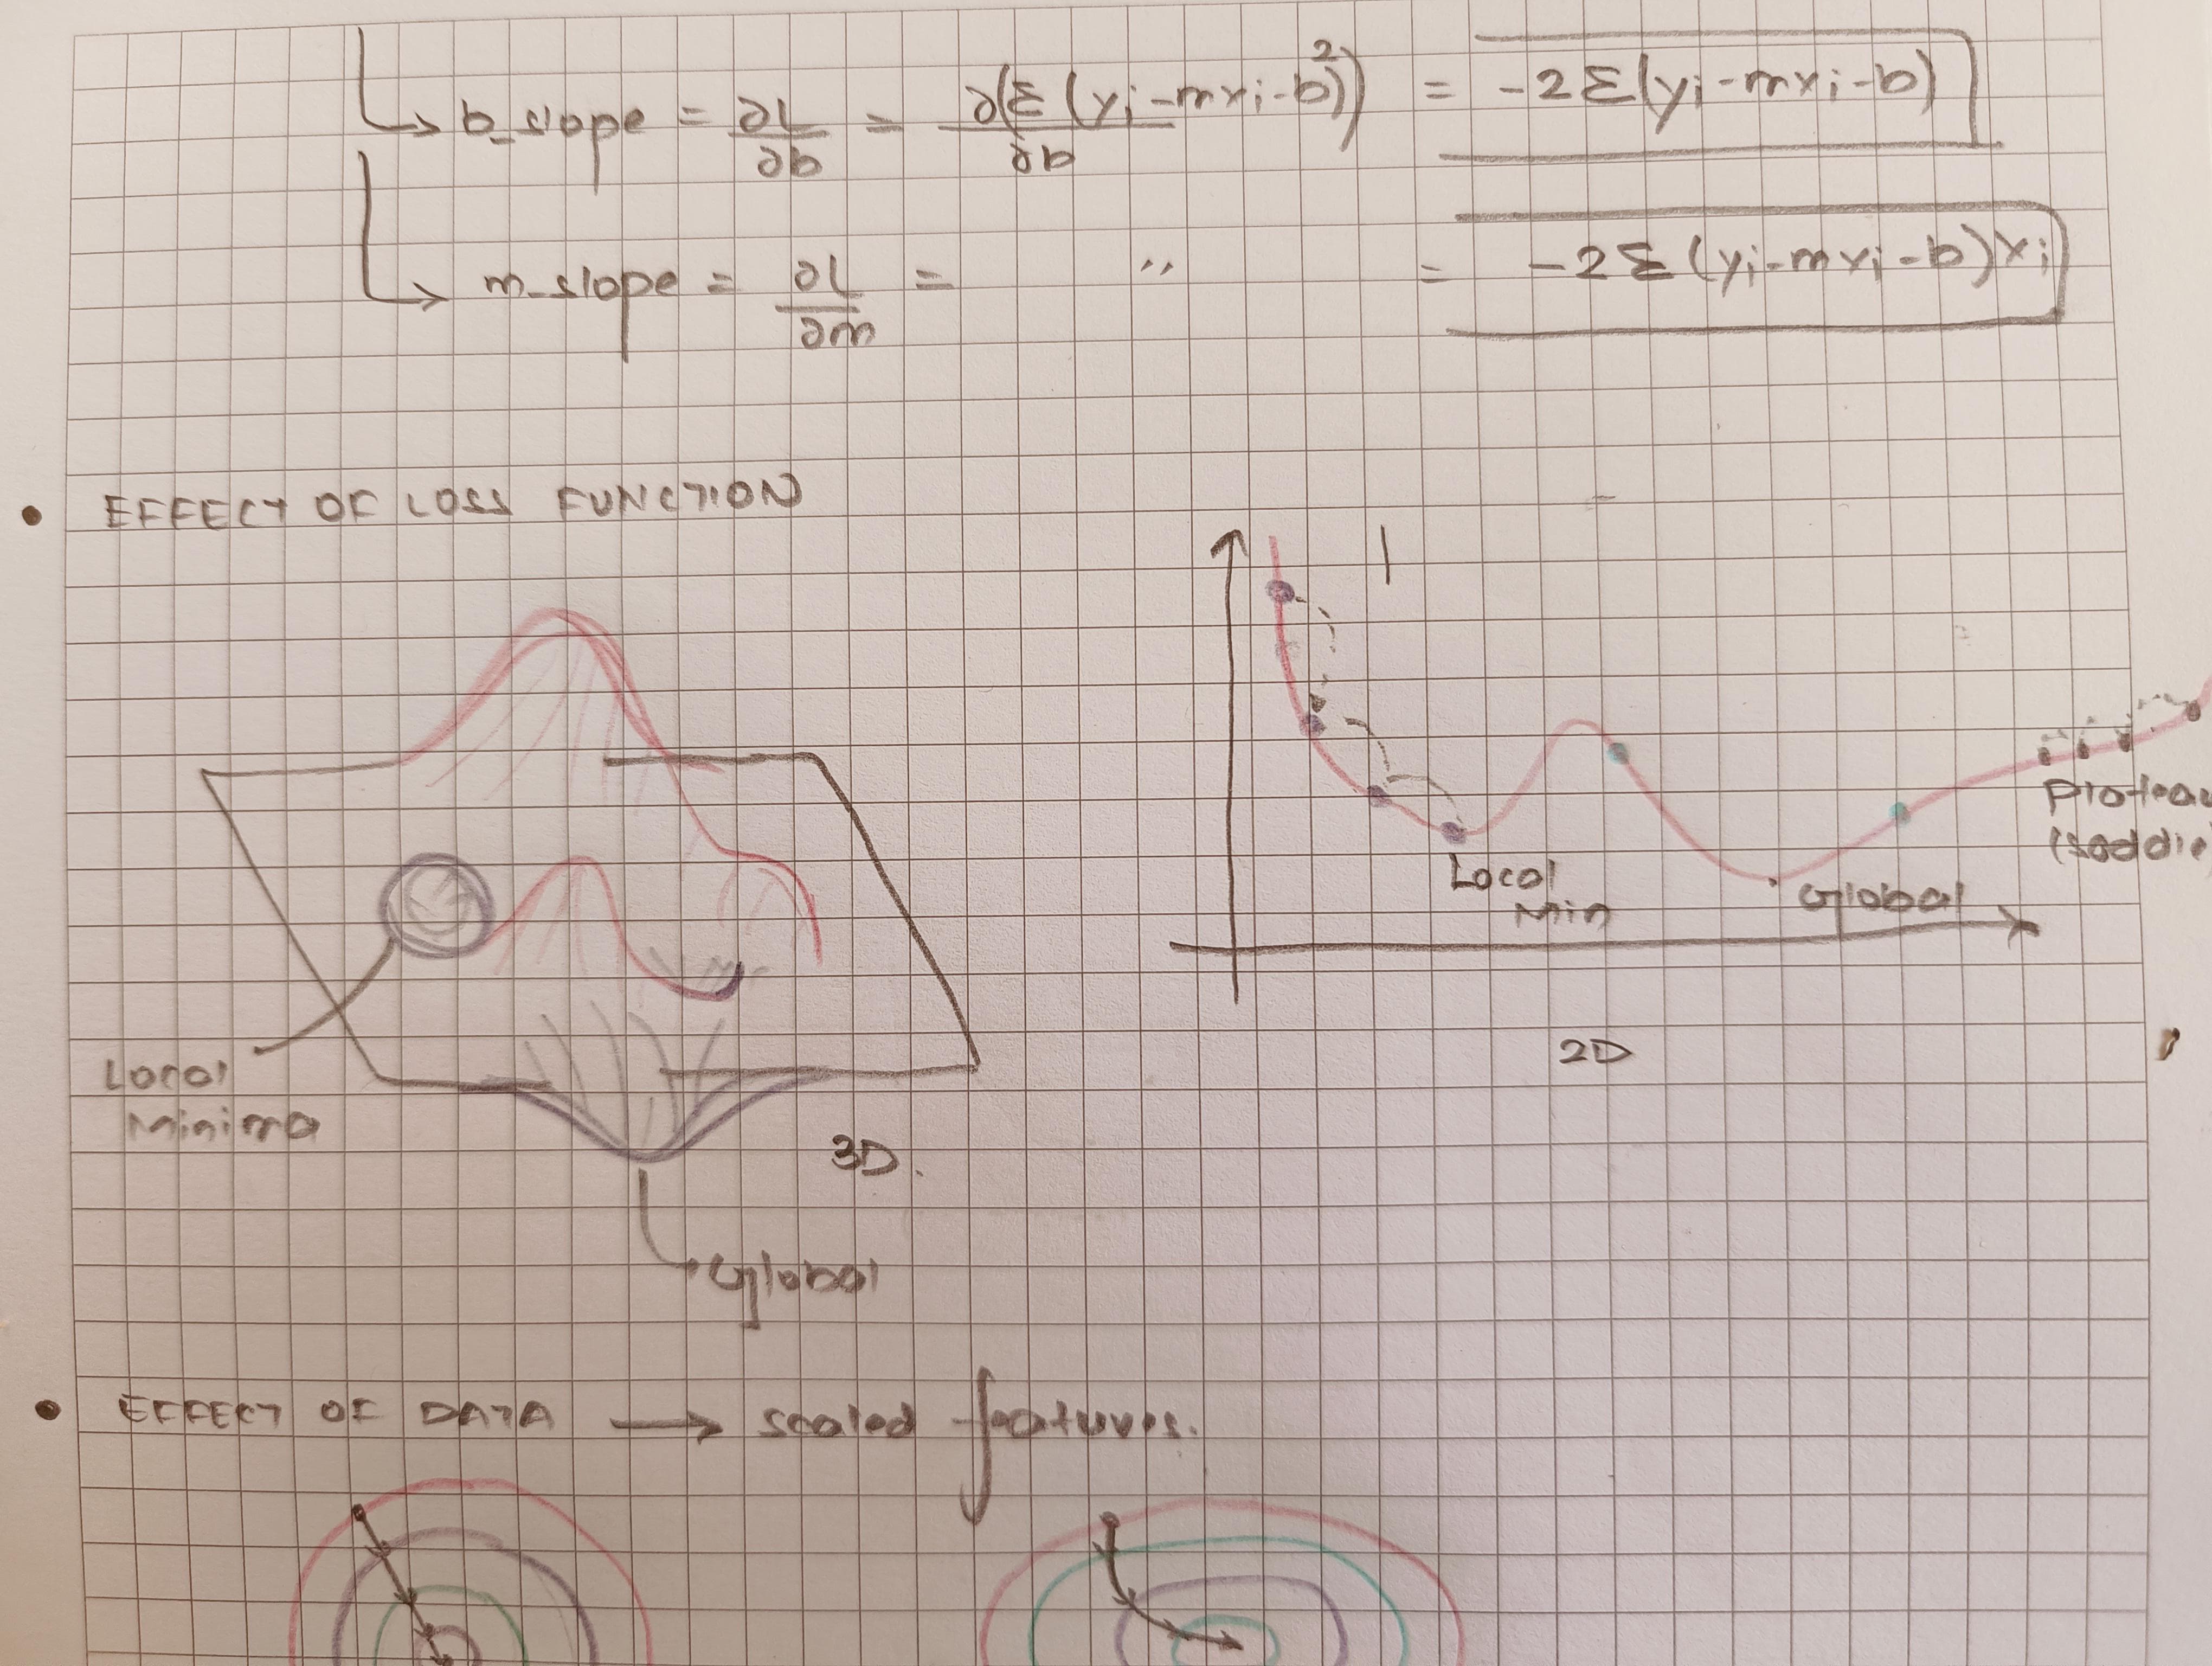 b_slope = ∂L/∂b = ∂(Σ(yi-mxi-b)²)/∂b = -2Σ(yi-mxi-b)
m_slope = ∂L/∂m = " = -2Σ(yi-mxi-b)xi
• EFFECT OF LOSS FUNCTION
Local
Min
Global
(saddle
2D
Local
Minima
3D.
Global
• EFFECT OF DATA → scaled features.